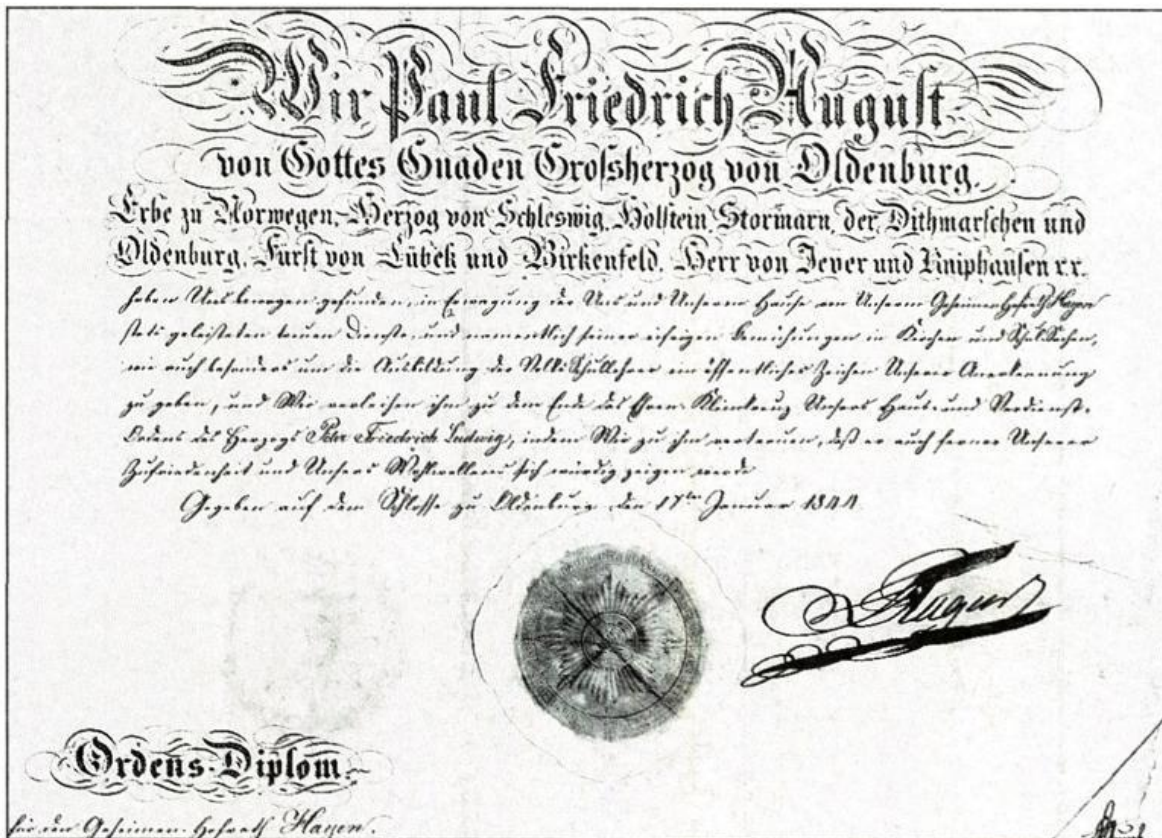 Wir Paul Friedrich August
von Gottes Gnaden Grossherzog von Oldenburg,
Erbe zu Norwegen, Herzog von Schleswig, Holstein, Stormarn, der Dithmarschen und
Oldenburg, Fürst von Lübek und Birkenfeld, Herr von Jever und Kniphausen r.r.
haben Uns bewogen gefunden, in Erwägung der Uns und Unserm Hause von Unserm Geheimen Hofrath Hayen
stets geleisteten treuen Dienste, und namentlich seiner eifrigen Bemühungen in Kirchen und Schul-Sachen,
wie auch besonders um die Ausbildung der Volks-Schullehrer ein öffentliches Zeichen Unserer Anerkennung
zu geben, und Wir verleihen ihm zu dem Ende das Ehren-Kleinkreuz Unsers Haus- und Verdienst-
Ordens des Herzogs Peter Friedrich Ludwig, indem Wir zu ihm vertrauen, daß er auch ferner Unserer
Zufriedenheit und Unsers Wohlwollens sich würdig zeigen werde.
Gegeben auf dem Schlosse zu Oldenburg den 17ten Januar 1844.
August
Ordens-Diplom
für den Geheimen-Hofrath Hayen.